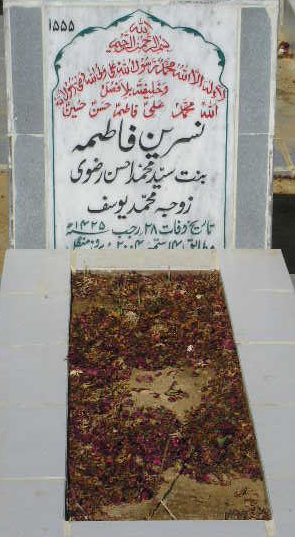 ۱۵۵۵
بسم اللہ الرحمن الرحیم
لا الہ الا اللہ محمد رسول اللہ علی ولی اللہ وصی رسول اللہ
وخلیفتہ بلا فصل
اللہ محمد علی فاطمہ حسن حسین
نسرین فاطمہ
بنت سید محمد احسن رضوی
زوجہ محمد یوسف
تاریخ وفات ۲۸ رجب ۱۴۲۵ھ
مطابق ۱۴ ستمبر ۲۰۰۴ء بروز منگل